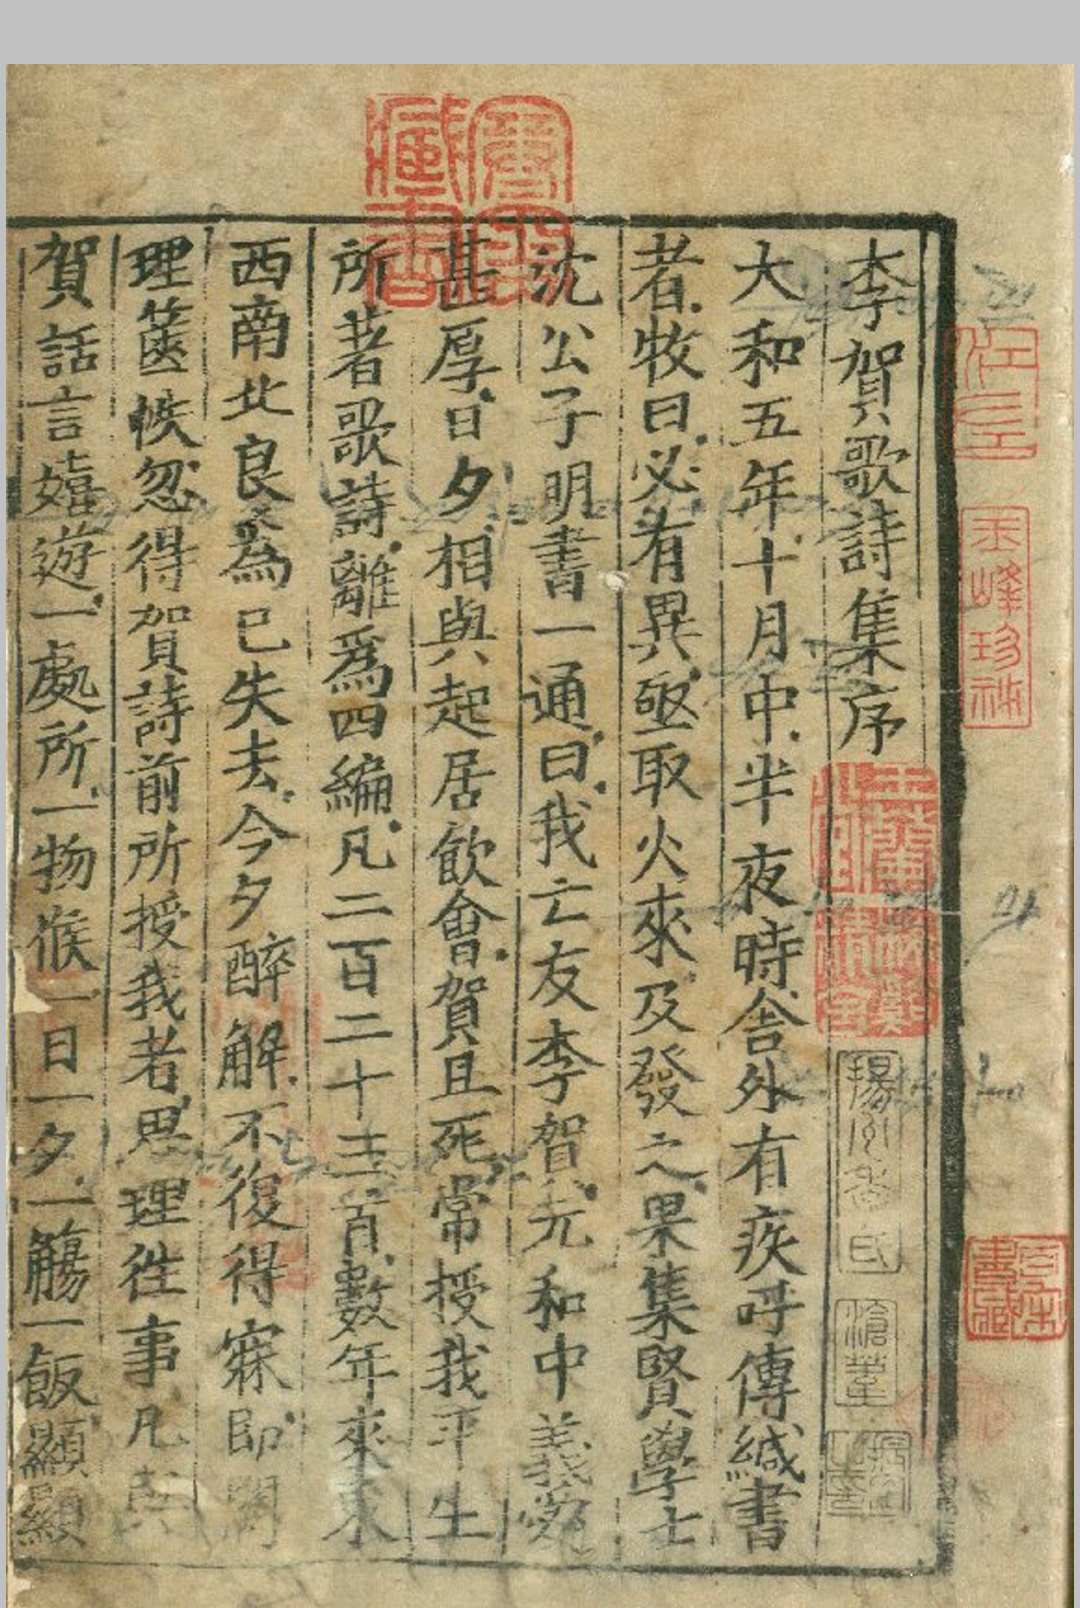 李賀歌詩集序
大和五年十月中半夜時舍外有疾呼傳緘書
者牧曰必有異亟取火來及發之果集賢學士
沈公子明書一通曰我亡友李賀元和中義愛
甚厚日夕相與起居飲會賀且死常授我平生
所著歌詩離爲四編凡二百二十三首數年來東
西南北良爲已失去今夕醉解不復得寐即閱
理篋帙忽得賀詩前所授我者思理徃事凡與
賀話言嬉遊一處所一物候一日一夕一觴一飯顯顯
玉峰珍秘